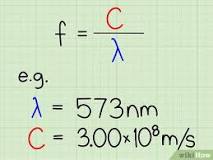 f = C
λ
e.g.
λ = 573nm
C = 3.00×10⁸m/s
wikiHow